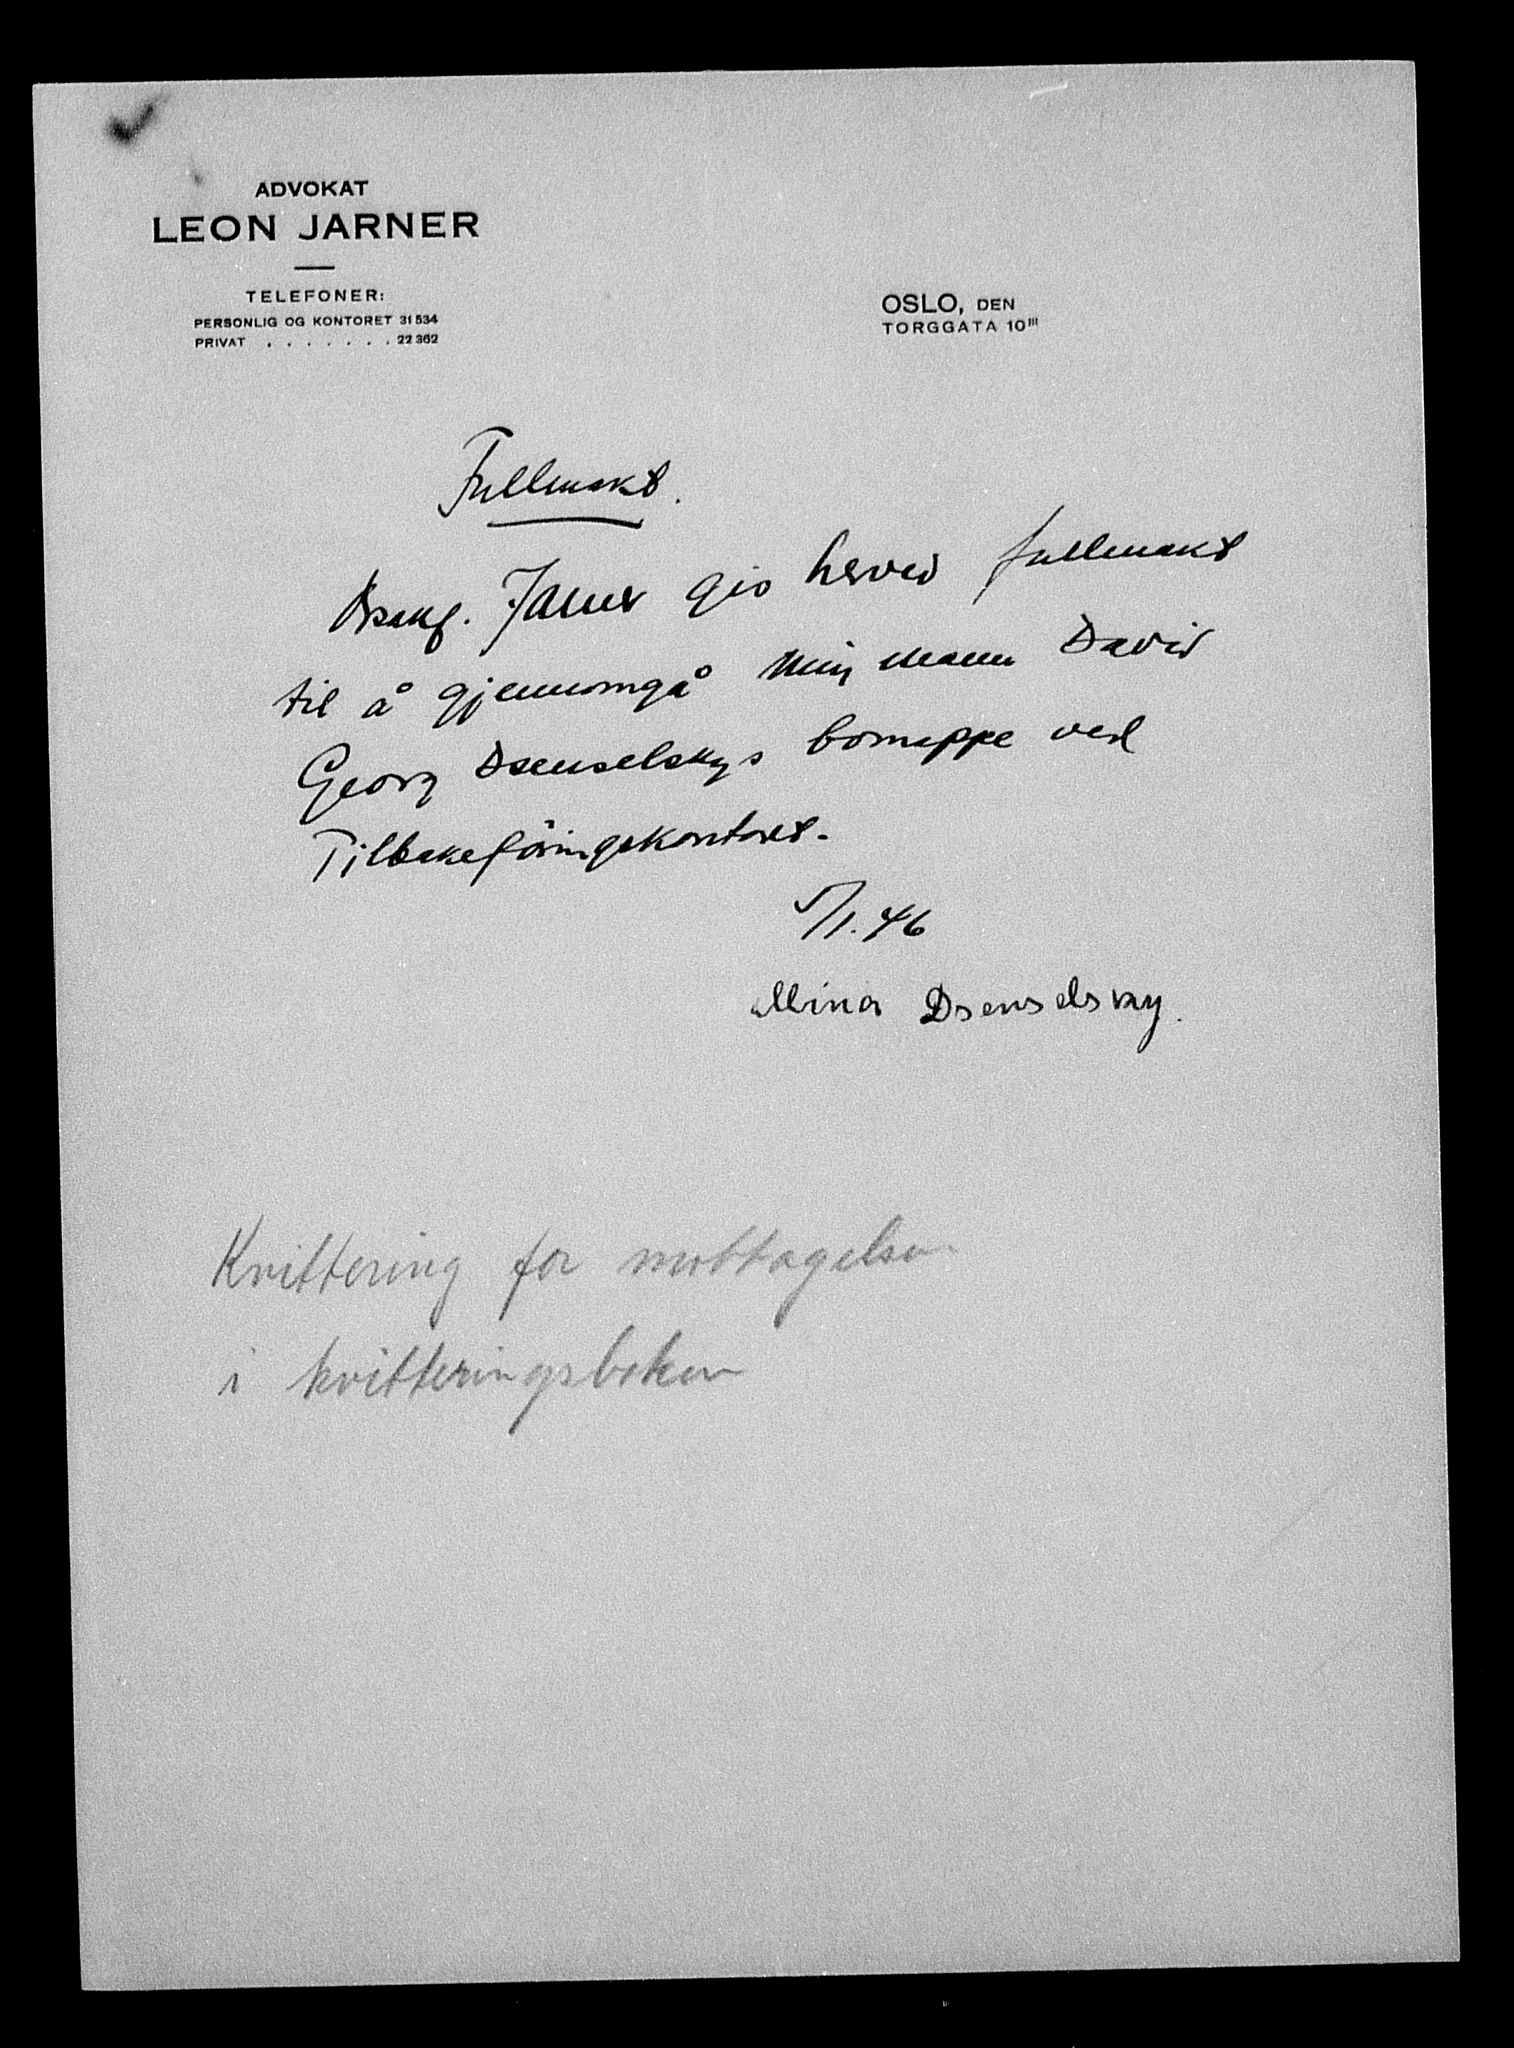 ADVOKAT
LEON JARNER
TELEFONER:
PERSONLIG OG KONTORET 31534
PRIVAT . . . . . . . 22362
OSLO, DEN
TORGGATA 10III
Fullmakt.
Orsakf. Jarner gis herved fullmakt
til å gjennomgå min mann David
Georg Dsenselskys bomappe ved
Tilbakeföringskontoret.
5/1.46
Mina Dsenselsky.
Kvittering for mottagelsen
i kvitteringsboken